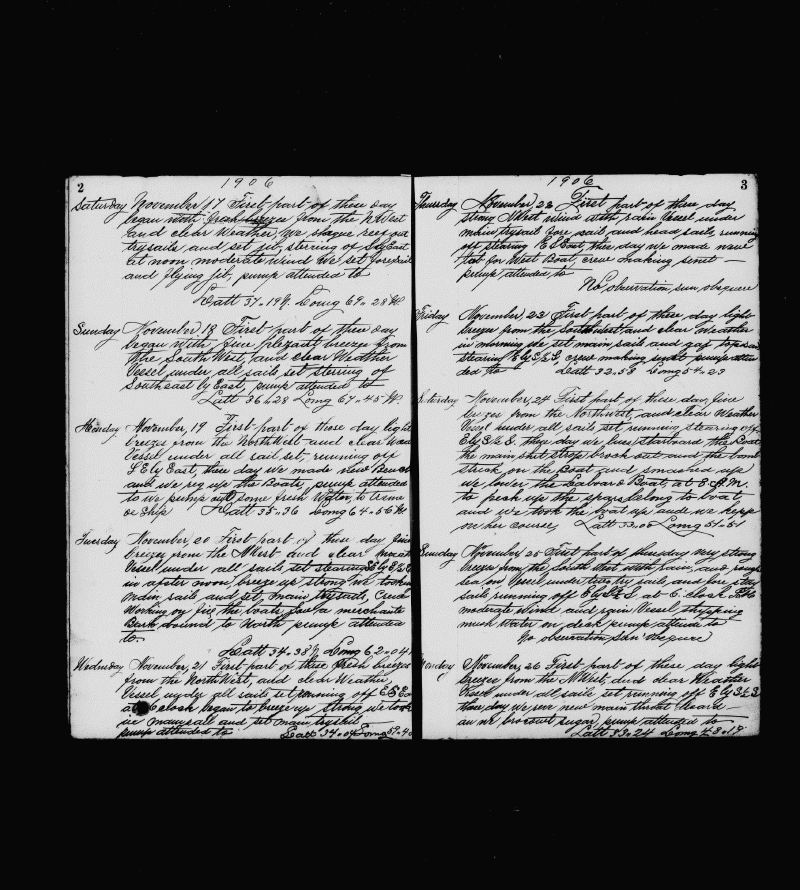 2
1906
Saturday November, 17 First part of these day
began with fresh breeze from the N West
and clear Weather, We shague reef out
trysails and set jib, sterring of S E y East
at noon moderate wind We set foresail
and flying jib, pump attended to
Latt 37.19 N. Long 69.28 W
Sunday November, 18 First part of these day
began with fine plezant breeze from
the South West, and clear Weather
Vessel under all sails set sterring of
Southeast by East, pump attended to
Latt 36.28 Long 67.45 W.
Monday November, 19 First part of these day light
breeze from the NorthWest and clear
Vessel under all sail set, running off
S E by East, these day we made new
and we reg up the Boats, pump attended
to we pump out some fresh Water, to
ship Latt 35.36 Long 64.56 W
Tuesday November, 20 First part of these day fine
breeze from the N West and clear
Vessel under all sails, set stearing
in after noon, breeze up strong we
main sail and set, main trysail, Crew
Working on fix the boats, for a merchante
Bark bound to North pump attended
to.
Latt 34.38 N Long 62.04
Wednesday November, 21 First part of these fresh breeze
from the NorthWest, and clear Weather,
Vessel under all sail set running off
at o clock began to breeze up strong we took
in mainsail and set main trysail
pump attended to Latt 34.04 Long 59.40
3
1906
Thursday November, 22 First part of these day
strong S West wind with rain Vessel under
main trysail fore sail and head sails running
off stearing E S East, these day we made new
for West Boat, crew making senet —
pump attended, to
No observation, sun obsquere
Friday November, 23 First part of these day light
breeze from the Southwest and clear Weather
in morning We set main sails and gap topsail
stearing E by S ½ S, crew making senet pump atten
ded to Latt 32.58 Long 54.23
Saturday November, 24 First part of these day, fine
breeze from the Northwest, and clear Weather
Vessel under all sails set running stearing off
E by S ½ S. these day we lines starboard the Boat
the main shut strop brook out and the boom
struck on the Boat and smashed up
we lower the Leaboard Boat, at P.M.
to peak up the spars belong to boat,
and we took the boat up and we kepp
on her course, Latt 33.05 Long 51.51
Sunday November 25 First part of these day very strong
breeze from the South West with rain, and rough
sea on Vessel under two try sails, and fore stay
sails running off E by S ½ S. at 6. clock P.M.
moderate wind and rain Vessel shipping
much Water on deck pump attende to
No obervation Sun Obsquere
Monday November, 26 First part of these day light
breeze from the N West, and clear Weather
Vessel under all sails set running off E by S ½ S
these day we reve new main throat
an we broeout sugar, pump attended to
Latt 33.24 Long 48.19